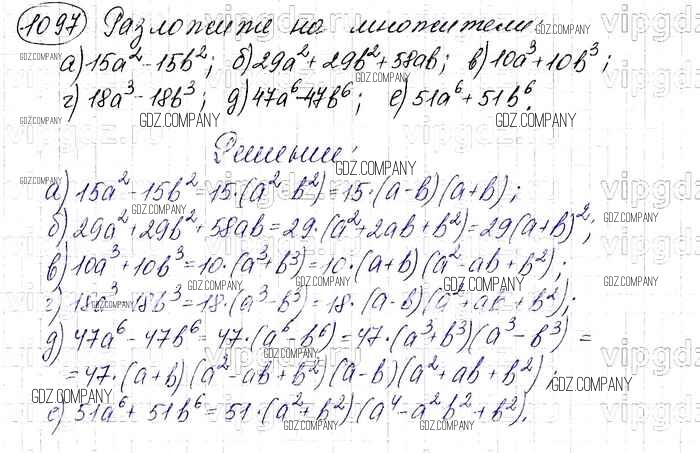 1097 Разложите на множители:
а) 15a² - 15b²; б) 29a² + 29b² + 58ab; в) 10a³ + 10b³;
г) 18a³ - 18b³; д) 47a⁶ - 47b⁶; е) 51a⁶ + 51b⁶.
Решение:
а) 15a² - 15b² = 15·(a² - b²) = 15·(a-b)(a+b);
б) 29a² + 29b² + 58ab = 29·(a² + 2ab + b²) = 29(a+b)²;
в) 10a³ + 10b³ = 10·(a³ + b³) = 10·(a+b)(a² - ab + b²);
г) 18a³ - 18b³ = 18·(a³ - b³) = 18·(a-b)(a² + ab + b²);
д) 47a⁶ - 47b⁶ = 47·(a⁶ - b⁶) = 47·(a³ + b³)(a³ - b³) =
= 47·(a+b)(a² - ab + b²)(a-b)(a² + ab + b²);
е) 51a⁶ + 51b⁶ = 51·(a² + b²)(a⁴ - a²b² + b²).
GDZ.COMPANY
vipgdz